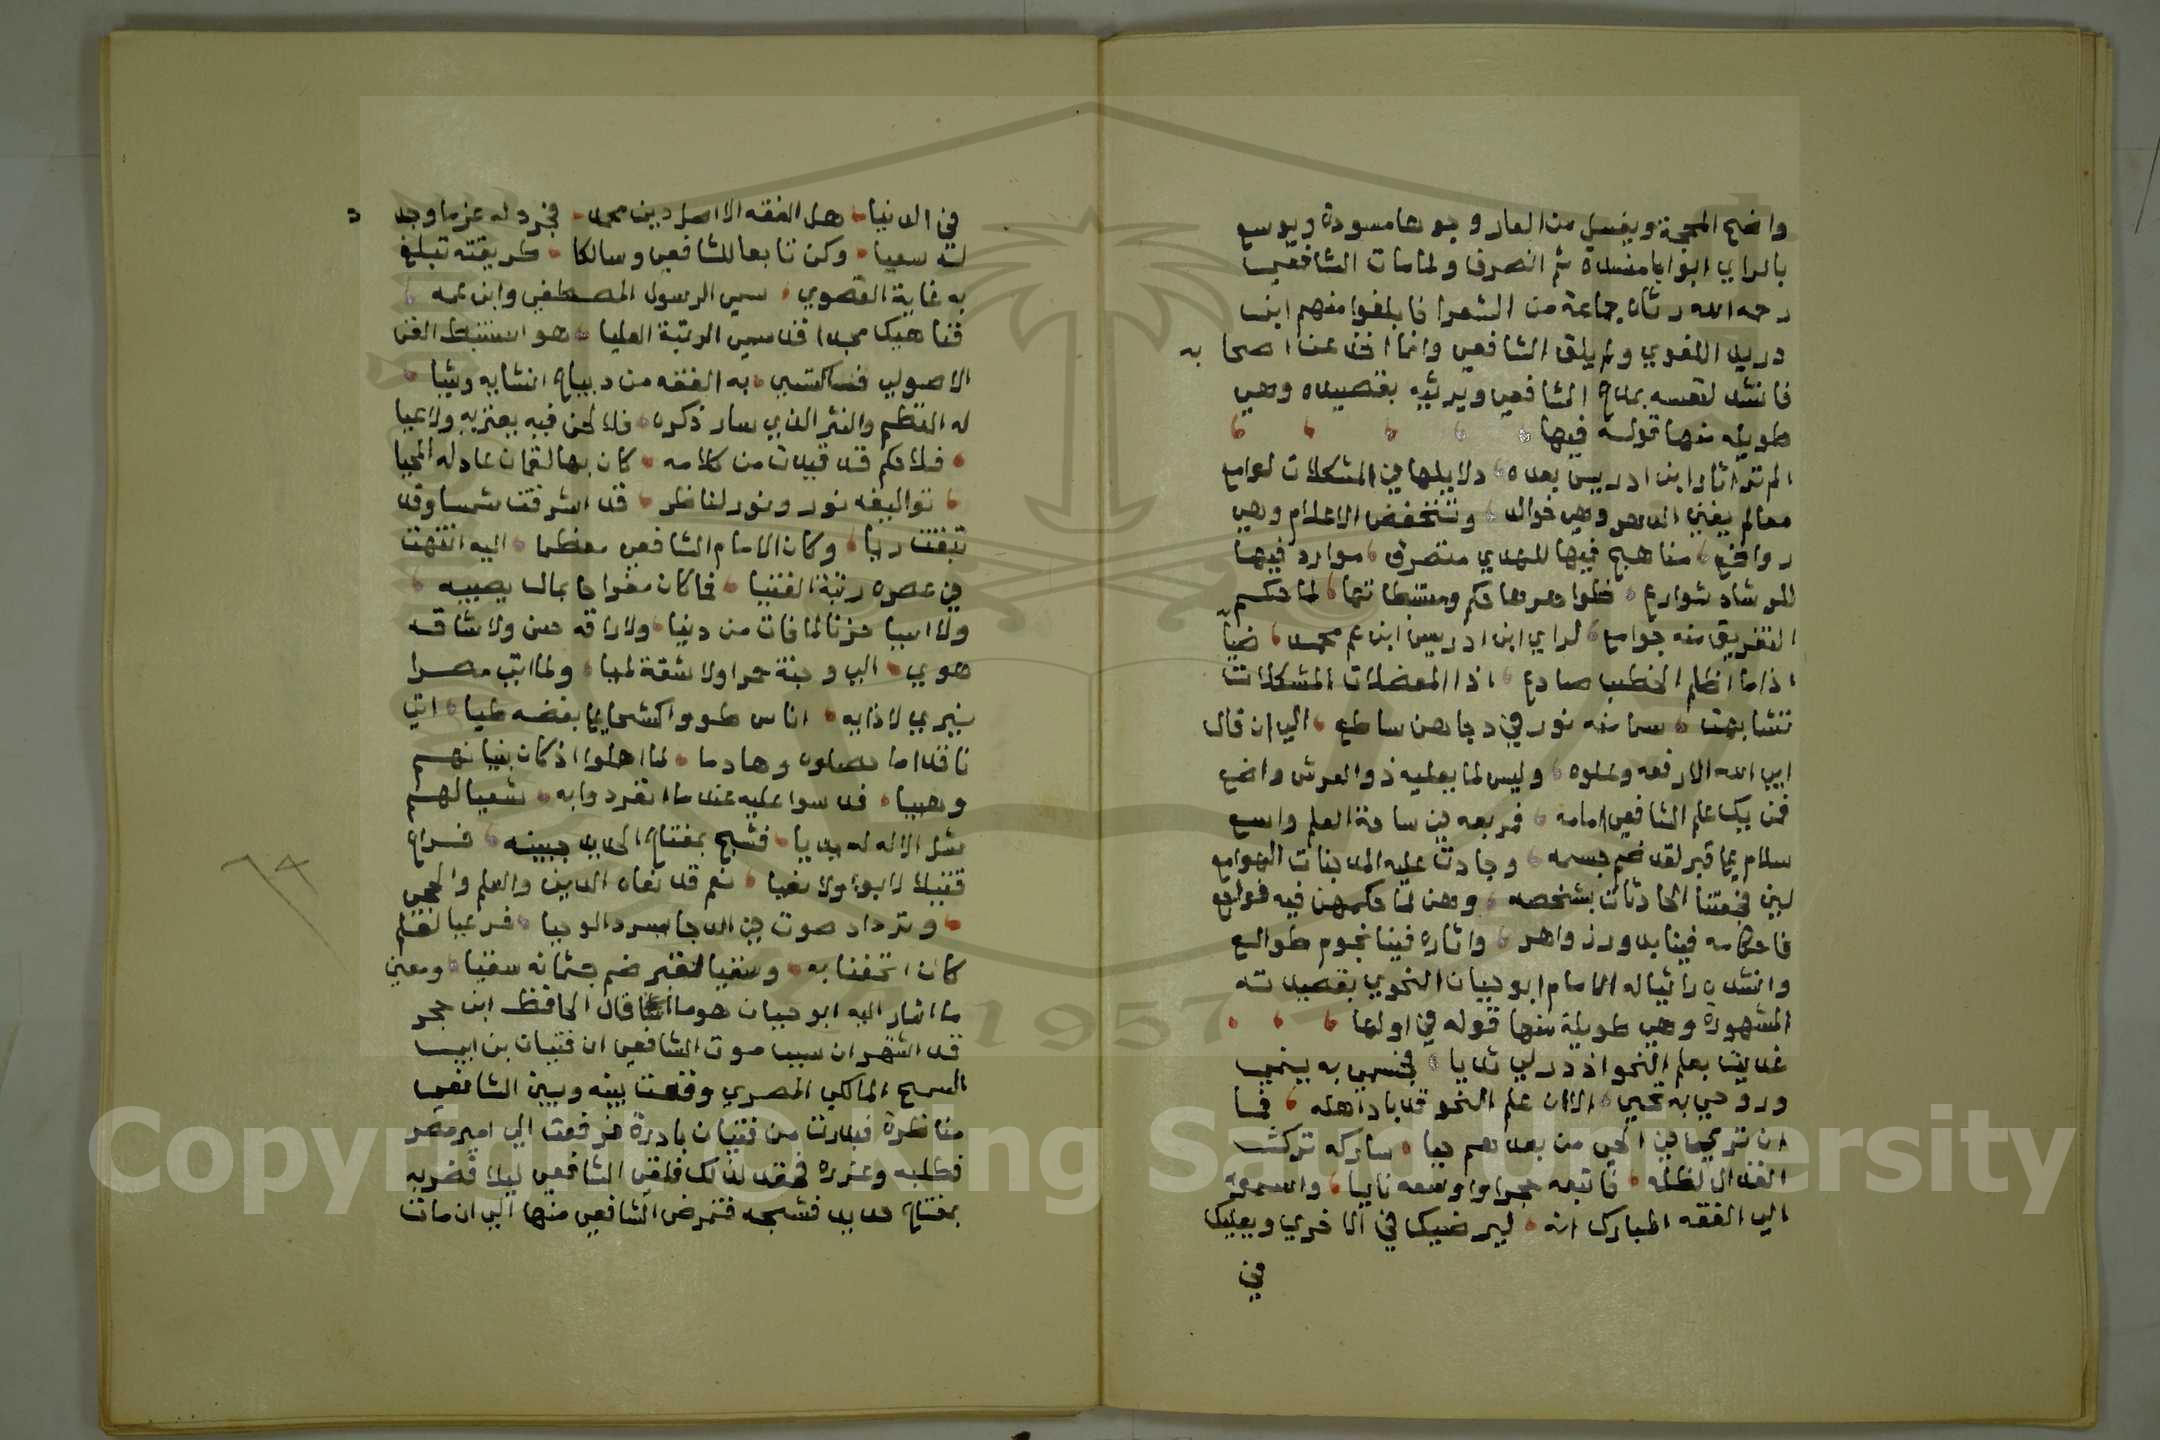 واضح المحجة ويغسل من العار وجوها مسودة ويوسع
بالراي ابوابا منسدة ثم انصرف ولما مات الشافعي
رحمه الله رثاه جماعة من الشعرا فابلغوا منهم ابن
دريد اللغوي ولم يلق الشافعي وانما اخذ عن اصحابه
فانشد لنفسه بمدح الشافعي ويرثيه بقصيده وهي
طويله منها قوله فيها
الم تر اثار ابن ادريس بعده دلايلها في المشكلات لوامع
معالم يفني الدهر وهي خوالد وتنخفض الاعلام وهي
روافع مناهج فيها للهدي متصرف موارد فيها
للرشاد شوارع ظواهرها حكم ومستنبطاتها لما حكم
التفريق منه جوامع لراي ابن ادريس ابن عم محمد ضيا
اذا ما اظلم الخطب صادع اذا المعضلات المشكلات
تشابهت سما منه نور في دجاهن ساطع الي ان قال
ابي الله الا رفعه وعلوه وليس لما يعليه ذو العرش واضع
فمن يك علم الشافعي امامه فمربعه في ساحة العلم واسع
سلام علي قبر لقد ضم جسمه وجادت عليه المدجنات الهوامع
لين فجعتنا الحادثات بشخصه وهن لما حكمن فيه فواجع
فاحكامه فينا بدور زواهر واثاره فينا نجوم طوالع
وانشده راثيا له الامام ابو حيان النحوي بقصيدته
المشهورة وهي طويلة منها قوله في اولها
غديت بعلم النحو اذ در لي ثديا فجسمي به ينمي
وروحي به تحيي الا ان علم النحو قد باد اهله فما
ان تري في الحي من بعدهم حيا ساركه ترك
الغزال لظله واتبعه هجرا واوسعه نايا واسمو
الي الفقه المبارك انه ليرضيك في الاخري ويعليك
في
في الدنيا هل الفقه الا اصل دين محمد فجرد له عزما وجد د
له سعيا وكن تابعا للشافعي وسالكا طريقته تبلغ
به غاية القصوي سمي الرسول المصطفي وابن عمه
فناهيك مجدا قد سمي الرتبة العليا هو استنبط الفن
الاصولي فاكتسي به الفقه من ديباج انشايه وشيا
له النظم والنثر الذي سار ذكره فلا لحن فيه يعتريه ولا عيا
فلا حكم قد قيدت من كلامه كان بها لقمان عاد له المحيا
تواليفه نور ونور لناظر قد اشرقت شمسا وقد
تبقت ريا وكان الامام الشافعي معظما اليه انتهت
في عصره رتبة الفتيا فما كان مفراحا بمال يصيبه
ولا اسيا حزنا لما فات من دنيا ولا راقه حسن ولا شاقه
هوي الي وجنة حمرا ولا شفة لميا ولما اتي مصرا
نبري لاذايه اناس طووا كشحا علي بغضه طيا اتي
ناقدا ما حصلوه وهادما لما اصلوا اذ كان بنيانهم
وهيا فدسوا عليه عند ما انفردوا به شقيا لهم
شل الاله له يديا فشج بمفتاح الحديد جبينه فراح
قتيلا لا بواء ولا نعيا نعم قد نعاه الدين والعلم والحجي
وترداد صوت في الدجا يسرد الوحيا فرعيا لعلم
كان اتحفنا به وسقيا لقبر ضم جثمانه سقيا ومعني
ما اشار اليه ابو حيان هو ما قال الحافظ ابن حجر
قد اشتهر ان سبب موت الشافعي ان فتيان بن ابي
السمح المالكي المصري وقعت بينه وبين الشافعي
مناظرة فبدرت من فتيان بادرة فرفعت الي امير مصر
فطلبه وعزره فحقد لذلك فلقي الشافعي ليلا فضربه
بمفتاح حديد فشجه فتمرض الشافعي منها الي ان مات
٦٨
1957
Copyright © King Saud University